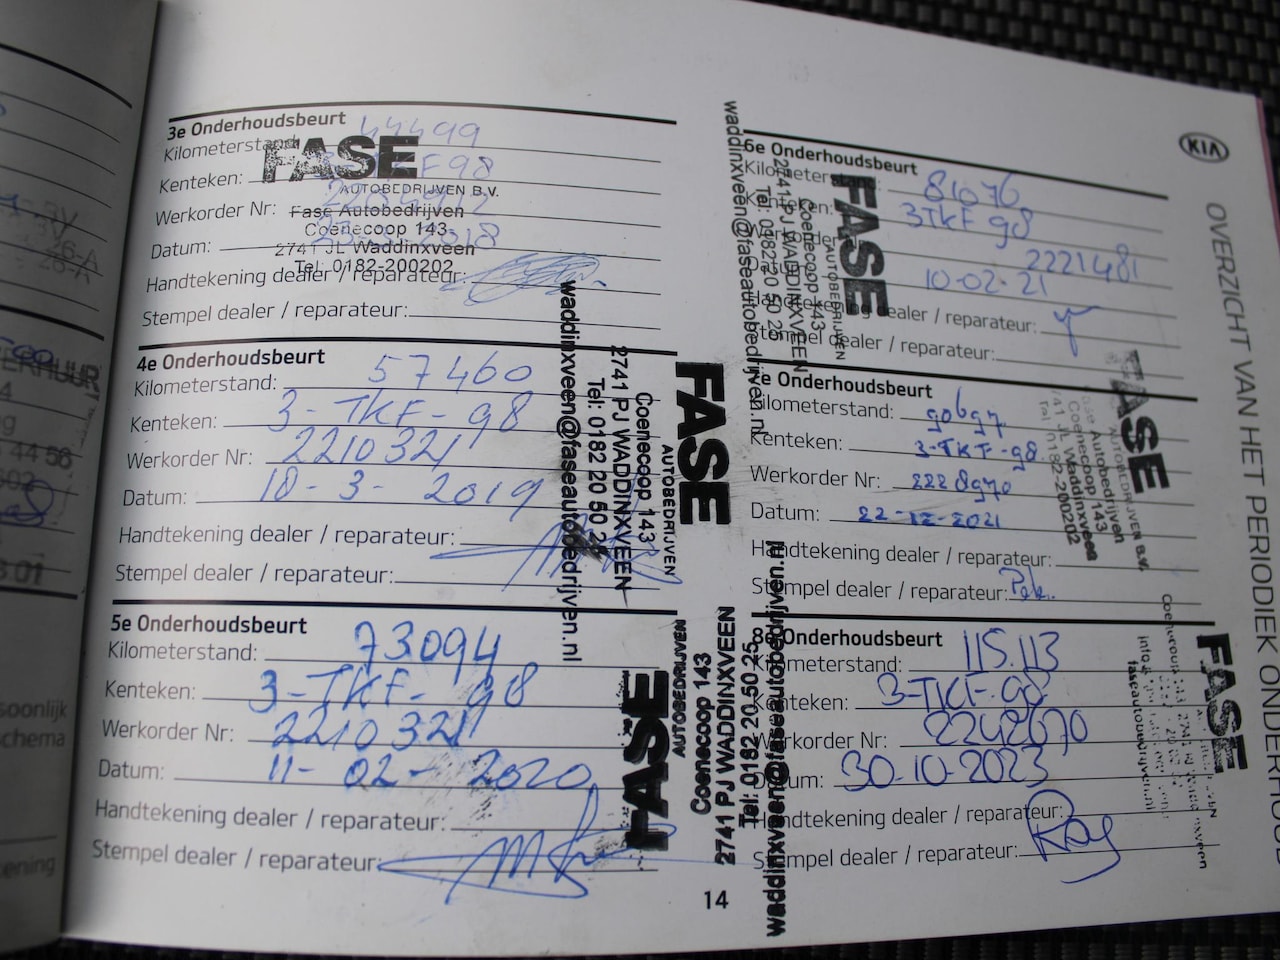 3e Onderhoudsbeurt
Kilometerstand: 44499
FASE
Kenteken: F98
AUTOBEDRIJVEN B.V.
Werkorder Nr:
Fase Autobedrijven
Coenecoop 143
Datum: 2018
2741 JL Waddinxveen
Tel: 0182-200202
Handtekening dealer / reparateur:
Stempel dealer / reparateur:
4e Onderhoudsbeurt
Kilometerstand: 57460
Kenteken: 3-TKF-98
Werkorder Nr: 2210321
Datum: 18-3-2019
Handtekening dealer / reparateur:
Stempel dealer / reparateur:
FASE
AUTOBEDRIJVEN
Coenecoop 143
2741 PJ WADDINXVEEN
Tel: 0182 20 50 2
waddinxveen@faseautobedrijven.nl
5e Onderhoudsbeurt
Kilometerstand: 73094
Kenteken: 3-TKF-98
Werkorder Nr: 2210321
Datum: 11-02-2020
Handtekening dealer / reparateur:
Stempel dealer / reparateur:
FASE
AUTOBEDRIJVEN
Coenecoop 143
2741 PJ WADDINXVEEN
Tel: 0182 20 50 25
waddinxveen@faseautobedrijven.nl
14
KIA
OVERZICHT VAN HET PERIODIEK ONDERHOUD
6e Onderhoudsbeurt
Kilometerstand: 81076
Kenteken: 3TKF98
Werkorder 2221481
10-02-21
Handtekening dealer / reparateur:
Stempel dealer / reparateur:
FASE
AUTOBEDRIJVEN
Coenecoop 143
2741 PJ WADDINXVEEN
Tel: 0182 20 50 25
waddinxveen@faseautobedrijven.nl
7e Onderhoudsbeurt
Kilometerstand: 90697
Kenteken: 3-TKF-98
Werkorder Nr: 2228970
Datum: 22-12-2021
Handtekening dealer / reparateur:
Stempel dealer / reparateur:
FASE
AUTOBEDRIJVEN B.V.
Fase Autobedrijven
Coenecoop 143
2741 JL Waddinxveen
Tel: 0182-200202
8e Onderhoudsbeurt
Kilometerstand: 115.113
Kenteken: 3-TKF-98
Werkorder Nr: 2242670
Datum: 30-10-2023
Handtekening dealer / reparateur:
Stempel dealer / reparateur:
FASE